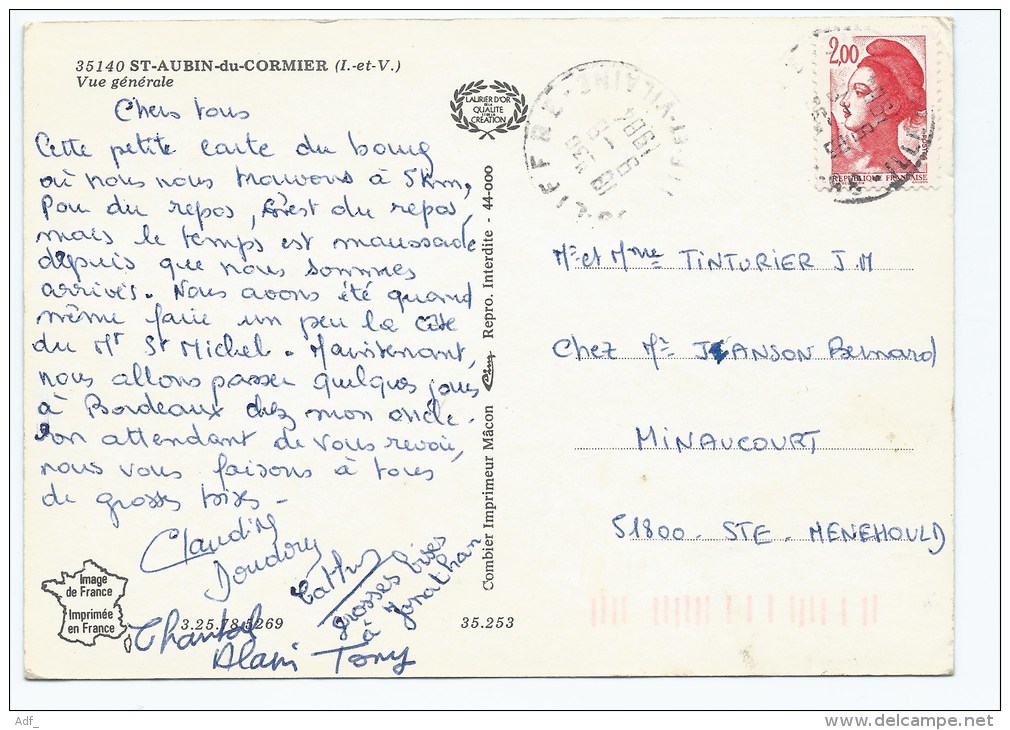 35140 ST-AUBIN-du-CORMIER (I.-et-V.)
Vue générale
Chers tous
Cette petite carte du bourg
où nous nous trouvons à 5km,
Pour du repos, c'est du repos,
mais le temps est maussade
depuis que nous sommes
arrivés. Nous avons été quand
même faire un peu la côte
du Mt St Michel. Maintenant,
nous allons passer quelques jours
à Bordeaux chez mon oncle.
En attendant de vous revoir,
nous vous faisons à tous
de grosses bises -
Claudine
Doudou
Cathy
grosses bises
à Jonathan
Chantal
Alain Tony
Image
de France
Imprimée
en France
3.25.78.5269
35.253
Combier Imprimeur Mâcon Cim Repro. Interdite - 44-000
LAURIER D'OR
DE LA
QUALITÉ
CRÉATION
LIFFRÉ
ILLE-ET-VILAINE
2,00
REPUBLIQUE FRANÇAISE
Mr et Mme TINTURIER J.M
Chez Mr JEANSON Bernard
MINAUCOURT
51800. STE. MENEHOULD
Adf_
www.delcampe.net